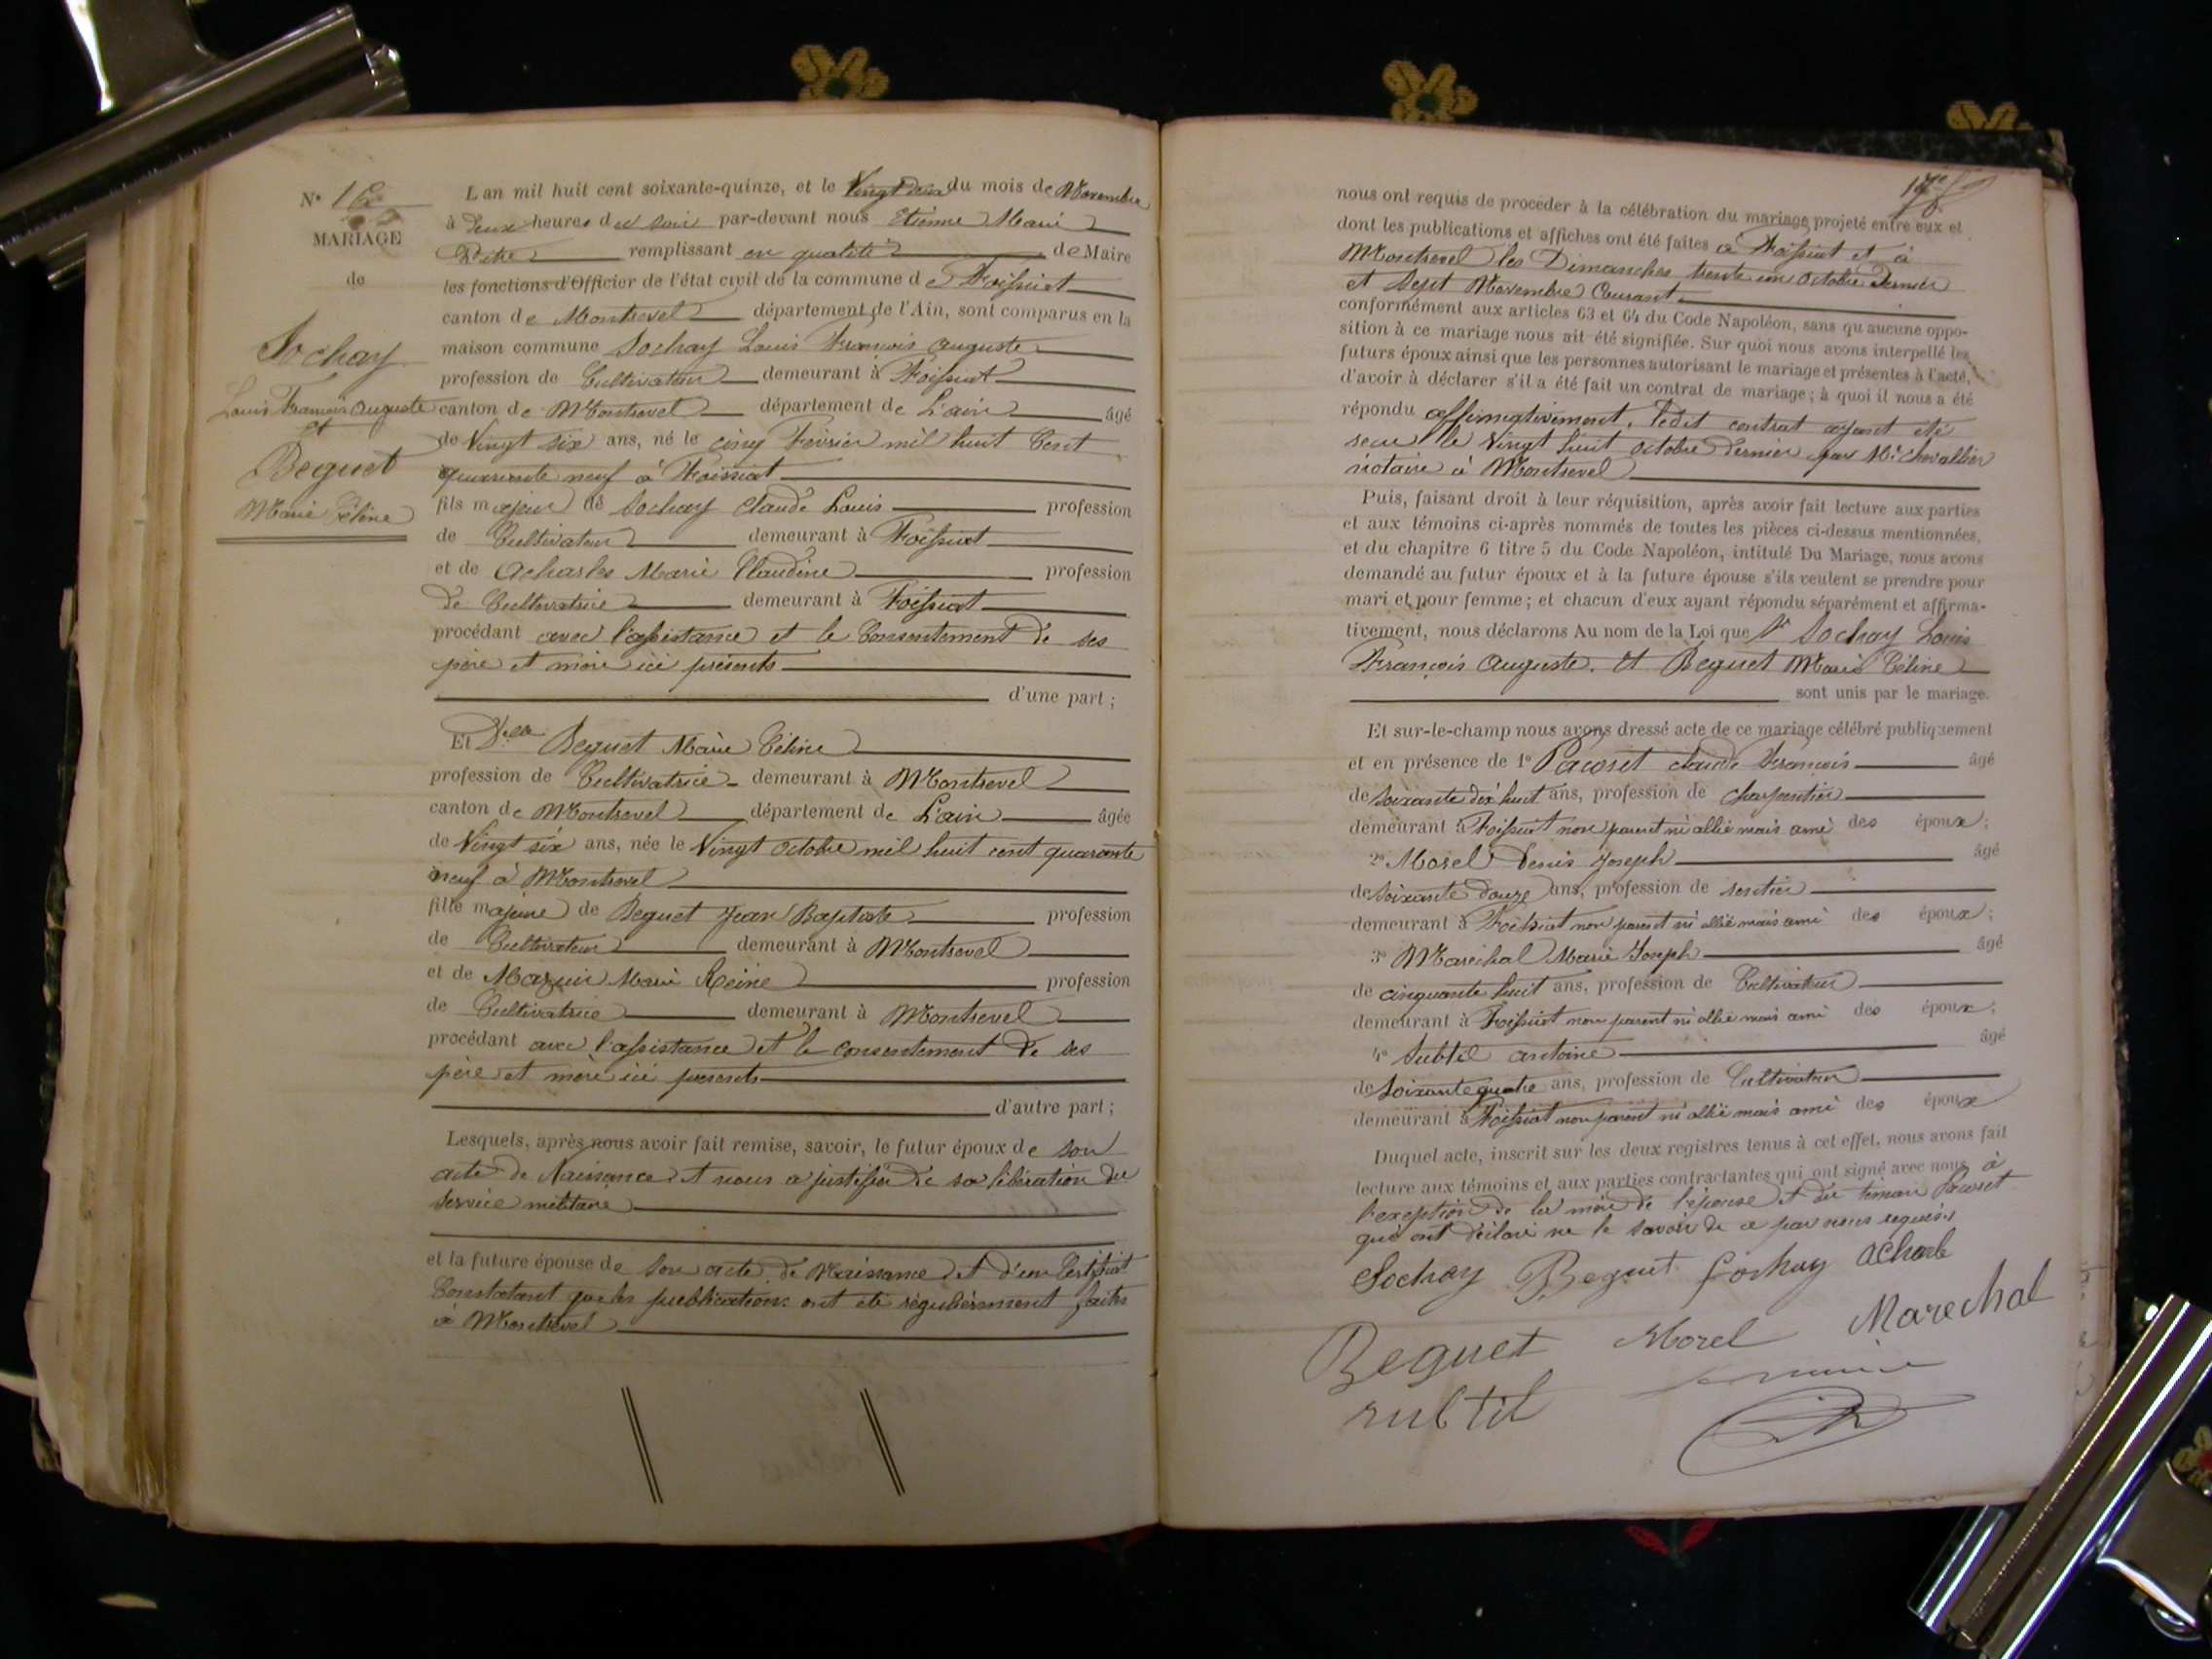 N° 16
MARIAGE
de
Sochay
Louis François Auguste
et
Beguet
Marie Céline
L'an mil huit cent soixante-quinze, et le Vingt deux du mois de Novembre
à deux heures du soir par-devant nous Etienne Marie
remplissant en qualité de Maire
les fonctions d'Officier de l'état civil de la commune de Foissiat
canton de Montrevel département de l'Ain, sont comparus en la
maison commune Sochay Louis François Auguste
profession de Cultivateur demeurant à Foissiat
canton de Montrevel département de L'ain âgé
de Vingt six ans, né le cinq Février mil huit Cent
quarante neuf à Foissiat
fils majeur de Sochay Claude Louis profession
de Cultivateur demeurant à Foissiat
et de Acharles Marie Claudine profession
de Cultivatrice demeurant à Foissiat
procédant avec l'assistance et le Consentement de ses
père et mère ici présents
d'une part ;
Et Delle Beguet Marie Céline
profession de Cultivatrice demeurant à Montrevel
canton de Montrevel département de L'ain âgée
de Vingt six ans, née le Vingt octobre mil huit cent quarante
neuf à Montrevel
fille majeure de Beguet Jean Baptiste profession
de Cultivateur demeurant à Montrevel
et de Mazuir Marie Reine profession
de Cultivatrice demeurant à Montrevel
procédant avec l'assistance et le consentement de ses
père et mère ici présents
d'autre part ;
Lesquels, après nous avoir fait remise, savoir, le futur époux de son
acte de Naissance et nous a justifié de sa libération du
service militaire
et la future épouse de son acte de Naissance et d'un Certificat
Constatant que les publications ont été régulièrement faites
à Montrevel
nous ont requis de procéder à la célébration du mariage projeté entre eux et
dont les publications et affiches ont été faites à Foissiat et à
Montrevel les Dimanches trente un octobre Dernier
et Sept Novembre Courant
conformément aux articles 63 et 64 du Code Napoléon, sans qu'aucune oppo-
sition à ce mariage nous ait été signifiée. Sur quoi nous avons interpellé les
futurs époux ainsi que les personnes autorisant le mariage et présentes à l'acte,
d'avoir à déclarer s'il a été fait un contrat de mariage ; à quoi il nous a été
répondu affirmativement, ledit contrat ayant été
recu le Vingt huit octobre dernier par Me Chevallier
notaire à Montrevel
Puis, faisant droit à leur réquisition, après avoir fait lecture aux parties
et aux témoins ci-après nommés de toutes les pièces ci-dessus mentionnées,
et du chapitre 6 titre 5 du Code Napoléon, intitulé Du Mariage, nous avons
demandé au futur époux et à la future épouse s'ils veulent se prendre pour
mari et pour femme ; et chacun d'eux ayant répondu séparément et affirma-
tivement, nous déclarons Au nom de la Loi que Sochay Louis
François Auguste. et Beguet Marie Céline
sont unis par le mariage.
Et sur-le-champ nous avons dressé acte de ce mariage célébré publiquement
et en présence de 1° Pacoret claude François âgé
de soixante dix huit ans, profession de charpentier
demeurant à Foissiat non parent ni allié mais ami des époux ;
2° Morel Denis Joseph âgé
de soixante douze ans, profession de rentier
demeurant à Foissiat non parent ni allié mais ami des époux ;
3° Maréchal Marie Joseph âgé
de cinquante huit ans, profession de Cultivateur
demeurant à Foissiat non parent ni allié mais ami des époux ;
4° Subtil antoine âgé
de soixante quatre ans, profession de Cultivateur
demeurant à Foissiat non parent ni allié mais ami des époux
Duquel acte, inscrit sur les deux registres tenus à cet effet, nous avons fait
lecture aux témoins et aux parties contractantes qui ont signé avec nous à
l'exeption de la mère de l'épouse et du témoin Pacoret
qui ont déclaré ne le savoir de ce par nous requis.
Sochay Beguet Sochay Acharle
Beguet Morel Marechal
subtil